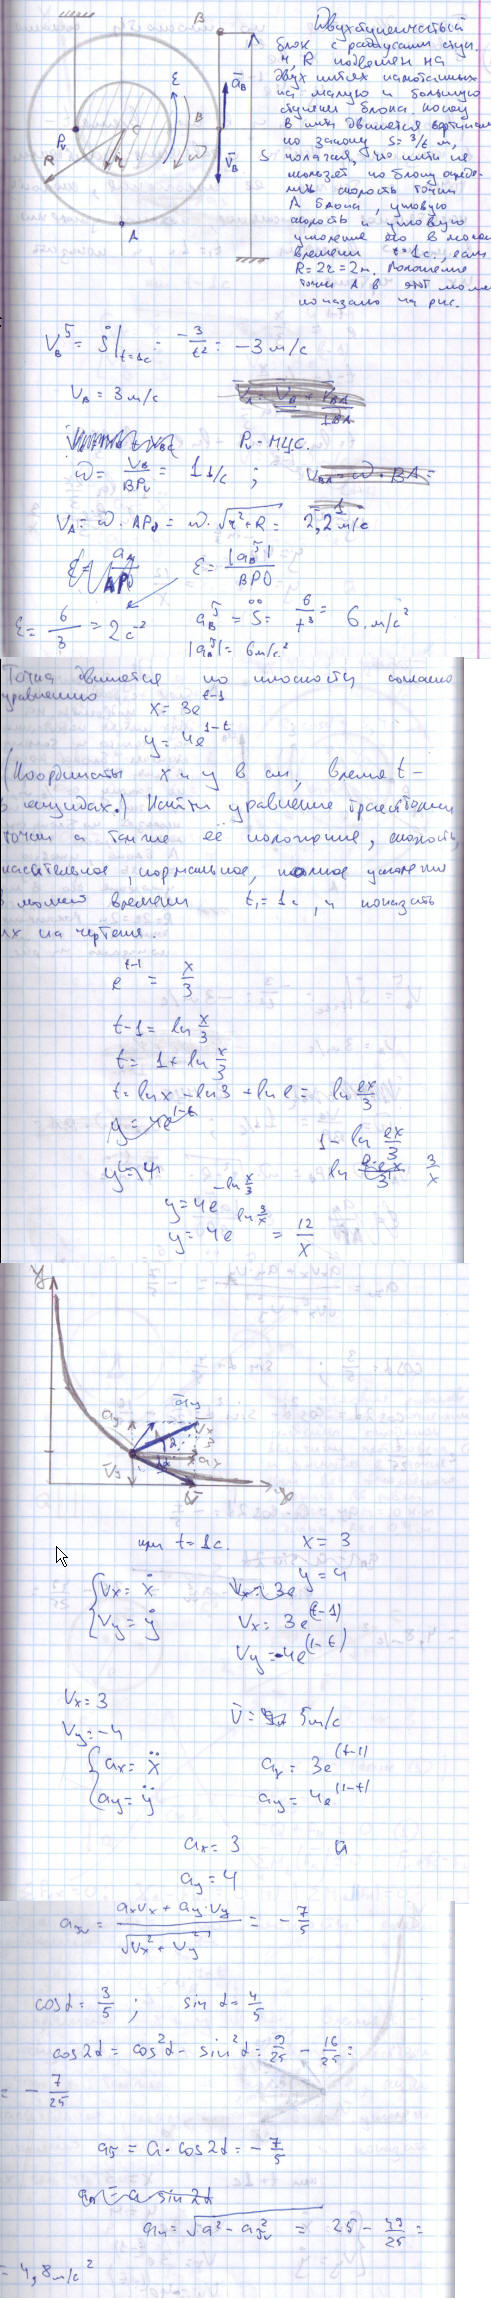 B
Двухступенчатый
блок с радиусами ступ.
r, R подвешен на
двух нитях намотанных
на малую и большую
ступени блока
по закону S = 3/t м,
полагая, что нити не
скользят по блоку опреде-
лить скорость точки
A блока, угловую
скорость и угловую
ускорение его в момент
времени t=1c., если
R=2r=2м. Положение
точки A в этот моме
показано на рис.
ε
a̅B
C
B
Pv
R
r
ω
V̅B
S
A
VB^S = Ṡ|t=1c = -3/t² = -3 м/с
VB = 3 м/с
Pv - МЦС.
ω = VB/BPv = 1 1/c ;
VA = ω · APv = ω · √r²+R = 2,2 м/с
ε = |aB|/BPv
ε = 6/3 = 2 c⁻²
aB = S̈ = 6/t³ = 6 м/с²
|aB| = 6 м/с²
Точка движется по плоскости согласно
уравнению
x = 3e^(t-1)
y = 4e^(1-t)
(Координаты x и y в см, время t -
в секундах.) Найти уравнение траектории
точки а также её положение, скорость,
касательное, нормальное, полное ускорение
в момент времени t₁ = 1c, и показать
их на чертеже.
e^(t-1) = x/3
t-1 = ln x/3
t = 1 + ln x/3
t = ln x - ln 3 + ln e = ln ex/3
y = 4e^(1-t)
1 - ln ex/3
3/x
y = 4e^(-ln x/3)
y = 4e^(ln 3/x) = 12/x
y
ay
Vx
ax
Vy
V̅
x
при t = 1c.
x = 3
y = 4
Vx = ẋ
Vx = 3e^(t-1)
Vy = ẏ
Vy = -4e^(1-t)
Vx = 3
Vy = -4
V̅ = 5 м/с
ax = ẍ
ax = 3e^(t-1)
ay = ÿ
ay = 4e^(1-t)
ax = 3
ay = 4
aτ = (axVx + ay·Vy)/√(Vx² + Vy²) = - 7/5
cos α = 3/5 ; sin α = 4/5
cos 2α = cos² α - sin² α = 9/25 - 16/25 =
= - 7/25
aτ = a · cos 2α = - 7/5
an = √a² - aτ² = 25 - 49/25 =
= 4,8 м/с²